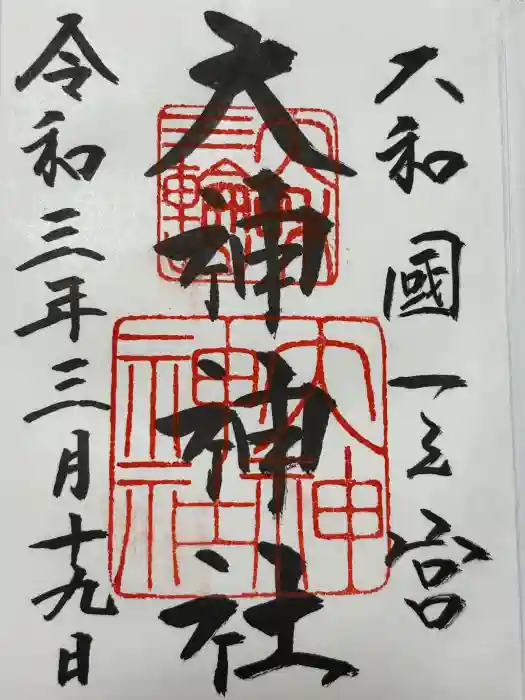 大和國一之宮
大神神社
令和三年三月十九日
三輪
大神神社